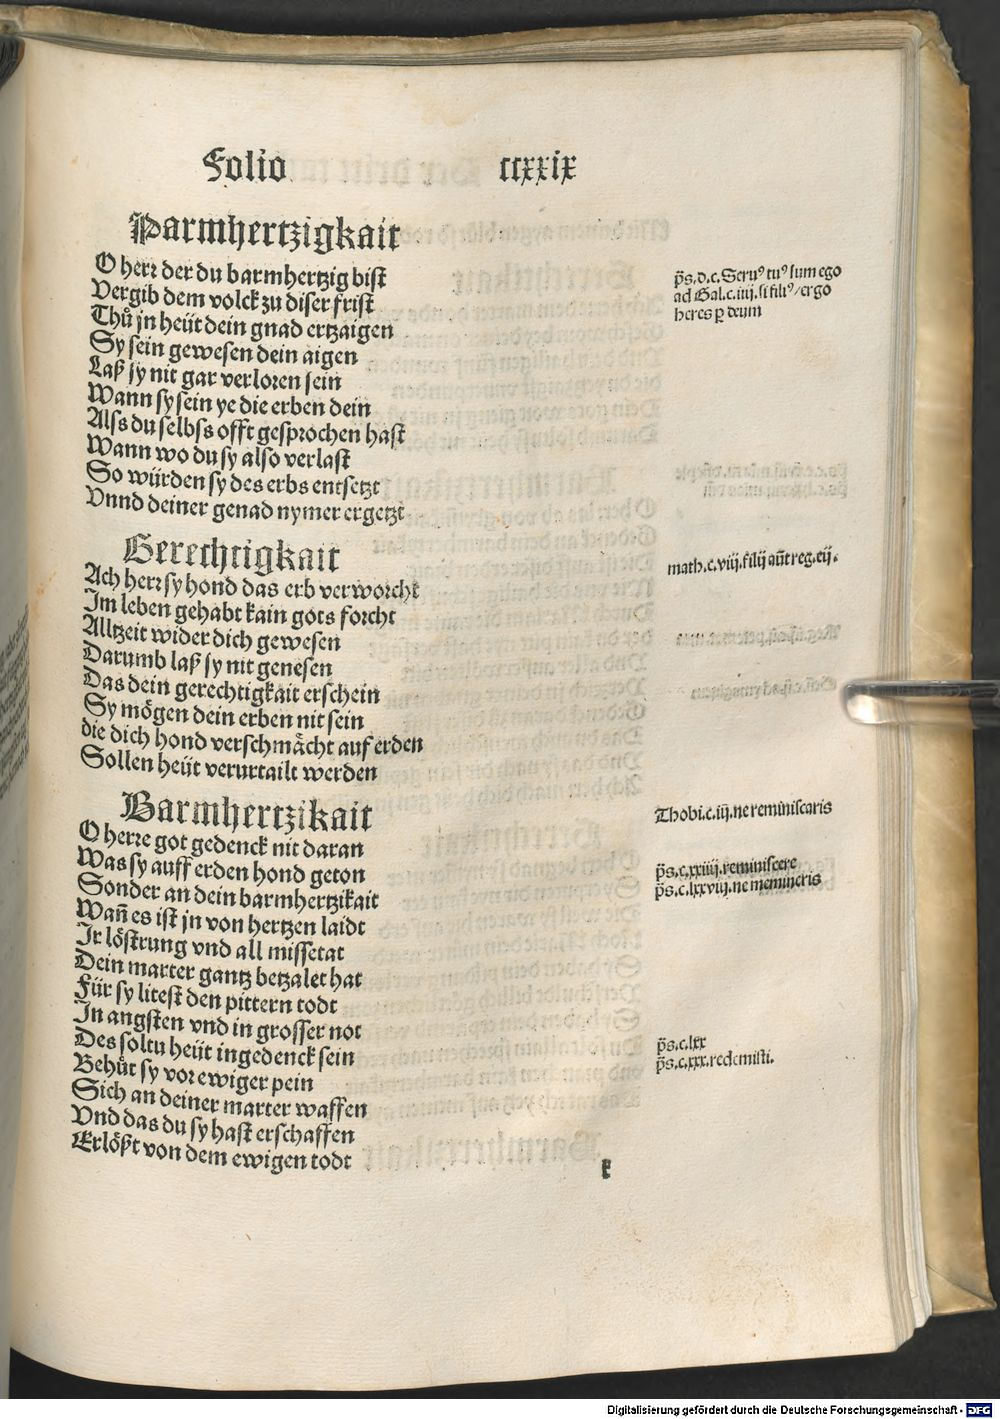 Folio ccxxix
Parmhertzigkait
O herr der du barmhertzig bist
Vergib dem volck zu diser frist
Thuͦ jn heüt dein gnad ertzaigen
Sy sein gewesen dein aigen
Laß sy nit gar verloren sein
Wann sy sein ye die erben dein
Alss du selbss offt gesprochen hast
Wann wo du sy also verlast
So würden sy des erbs entsetzt
Vnnd deiner genad nymer ergetzt
p̄s. d. c. Seruꝰ tuꝰ sum ego
ad Gal. c. iiij. si filiꝰ / ergo
heres ꝑ deum
Gerechtigkait
Ach herr sy hond das erb verworcht
Im leben gehabt kain gots forcht
Alltzeit wider dich gewesen
Darumb laß sy nit genesen
Das dein gerechtigkait erschein
Sy mögen dein erben nit sein
die dich hond verschmächt auf erden
Sollen heüt verurtailt werden
math. c. viij. filij aūt reg. eij.
Barmhertzikait
O herre got gedenck nit daran
Was sy auff erden hond geton
Sonder an dein barmhertzikait
Wan̄ es ist jn von hertzen laidt
Ir löstrung vnd all missetat
Dein marter gantz betzalet hat
Für sy litest den pittern todt
In angsten vnd in grosser not
Des soltu heüt ingedenck sein
Behüt sy vor ewiger pein
Sich an deiner marter waffen
Vnd das du sy hast erschaffen
Erlößt von dem ewigen todt
Thobi. c. iij. ne reminiscaris
p̄s. c. xxiiij. reminiscere
p̄s. c. lxxviij. ne memineris
p̄s. c. lxx
p̄s. c. xxx. redemisti.
Digitalisierung gefördert durch die Deutsche Forschungsgemeinschaft - DFG